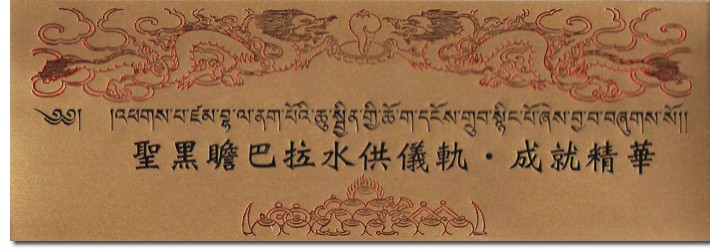 ༄༅། །འཕགས་པ་ཛམ་བྷ་ལ་ནག་པོའི་ཆུ་སྦྱིན་གྱི་ཆོ་ག་དངོས་གྲུབ་སྙིང་པོ་ཞེས་བྱ་བ་བཞུགས་སོ།།
聖黑瞻巴拉水供儀軌・成就精華